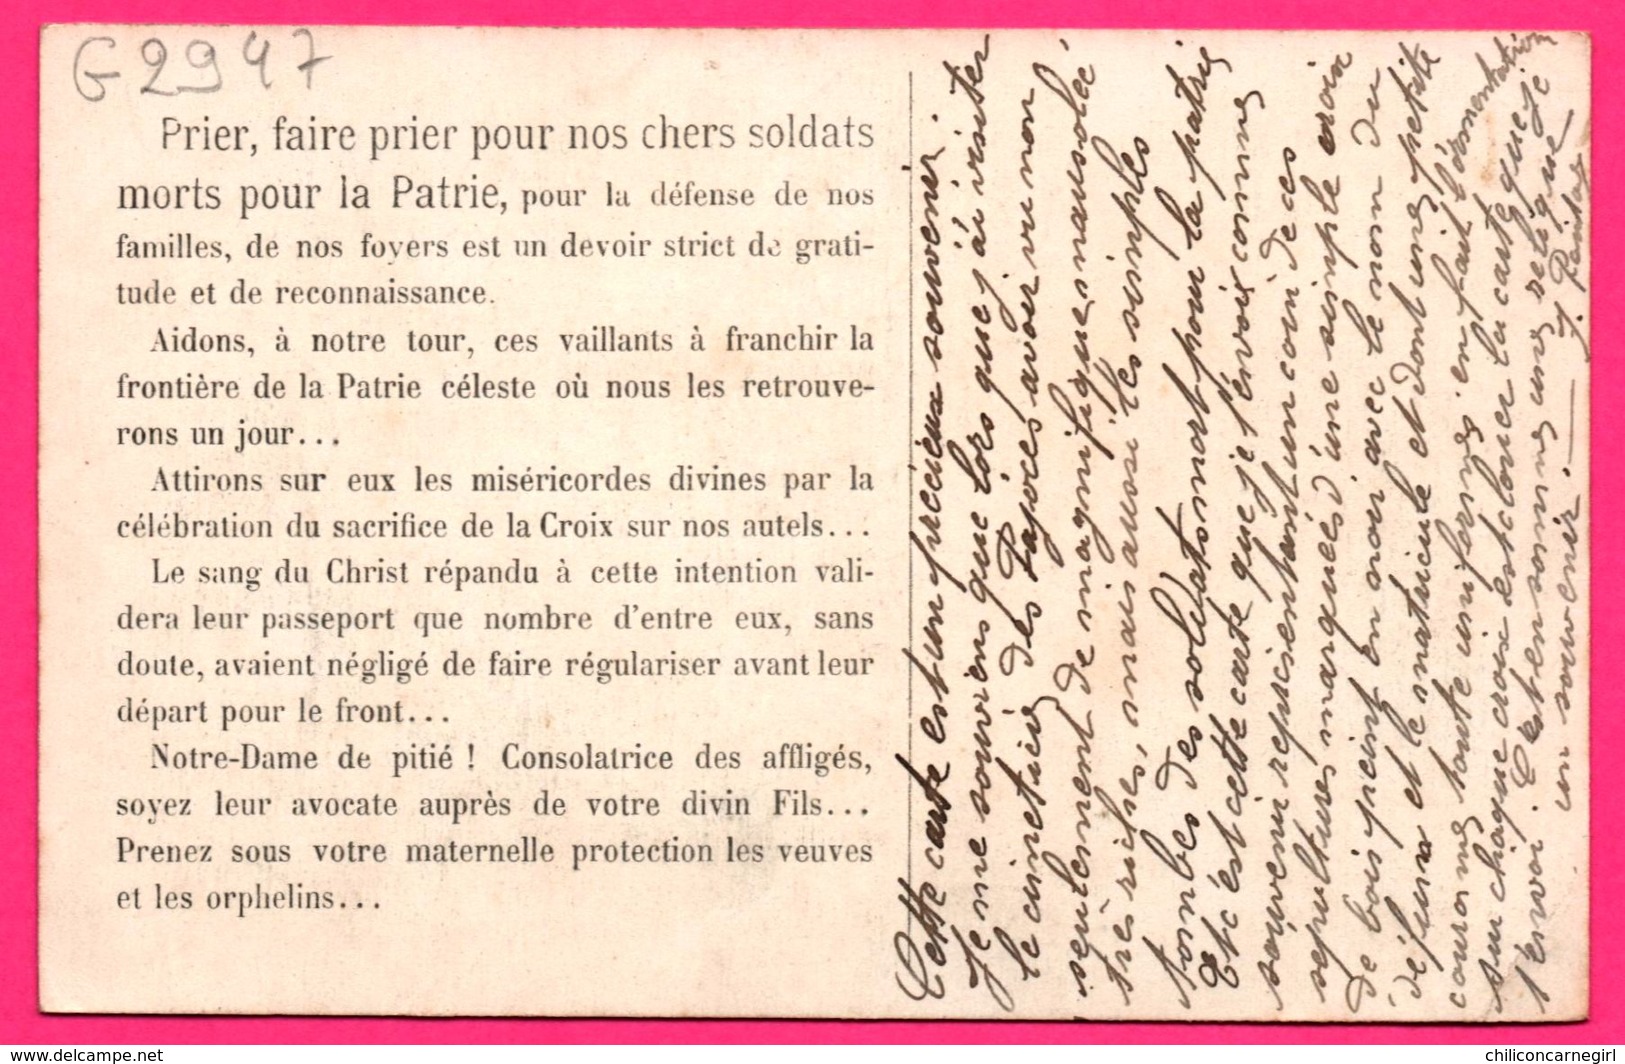 G2947
Prier, faire prier pour nos chers soldats
morts pour la Patrie, pour la défense de nos
familles, de nos foyers est un devoir strict de grati-
tude et de reconnaissance.
Aidons, à notre tour, ces vaillants à franchir la
frontière de la Patrie céleste où nous les retrouve-
rons un jour...
Attirons sur eux les miséricordes divines par la
célébration du sacrifice de la Croix sur nos autels...
Le sang du Christ répandu à cette intention vali-
dera leur passeport que nombre d'entre eux, sans
doute, avaient négligé de faire régulariser avant leur
départ pour le front...
Notre-Dame de pitié ! Consolatrice des affligés,
soyez leur avocate auprès de votre divin Fils...
Prenez sous votre maternelle protection les veuves
et les orphelins...
Cette carte est un précieux souvenir.
Je me souviens que lors que j'ai visiter
le cimetière des avoir vu non
seulement de magnifiques mausolée
très riches, mais aussi les simples
tombes des soldats mort pour la patrie
Et c'est cette carte que je t'envoie comme
souvenir représentant un coin de ces
sépultures marquées d'une simple croix
de bois peint en noir avec le nom du
défunt et le matricule et dont une petite
couronne toute uniforme en fait l'ornementation
sur chaque croix est clouer la carte que je
t'envoi. C'est en somme une relique
un souvenir. —
J.
chiliconcarne - delcampe.net
chiliconcarnegirl